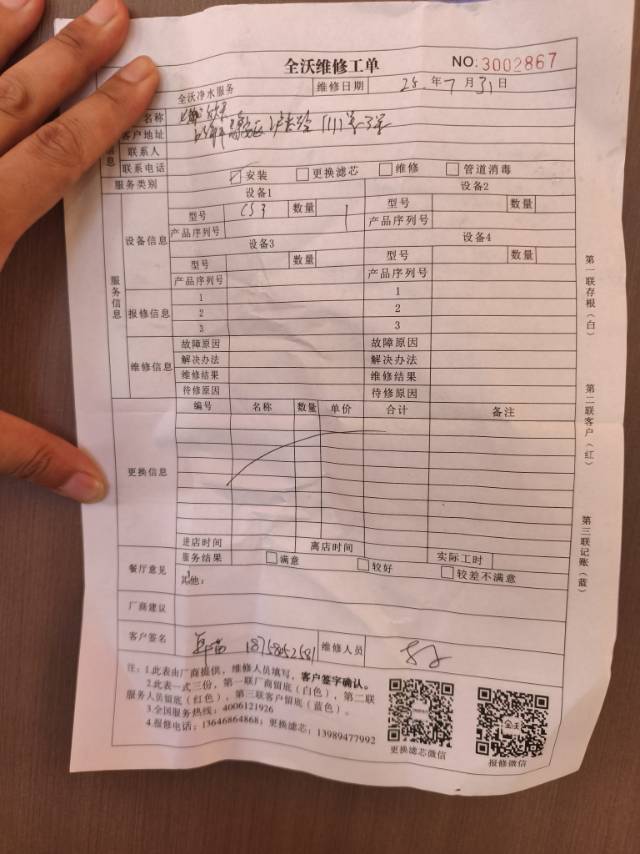 全沃维修工单 NO:3002867
全沃净水服务 维修日期 25 年 7 月 31 日
名称
客户地址 1111号
联系人
联系电话
服务类别 安装 更换滤芯 维修 管道消毒
服务信息
设备信息
设备1 设备2
型号 CS3 数量 1 型号 数量
产品序列号 产品序列号
设备3 设备4
型号 数量 型号 数量
产品序列号 产品序列号
报修信息
1 1
2 2
3 3
维修信息
故障原因 故障原因
解决办法 解决办法
维修结果 维修结果
待修原因 待修原因
更换信息
编号 名称 数量 单价 合计 备注
进店时间 离店时间 实际工时
餐厅意见 服务结果 满意 较好 较差不满意
其他:
厂商建议
客户签名 18758052581 维修人员
注:1.此表由厂商提供,维修人员填写,客户签字确认。
2.此表一式三份,第一联厂商留底(白色),第二联
服务人员留底(红色),第三联客户留底(蓝色)。
3.全国服务热线:4006121926
4.报修电话:13646864868;更换滤芯:13989477992
更换滤芯微信 报修微信
第一联存根(白)
第二联客户(红)
第三联记账(蓝)